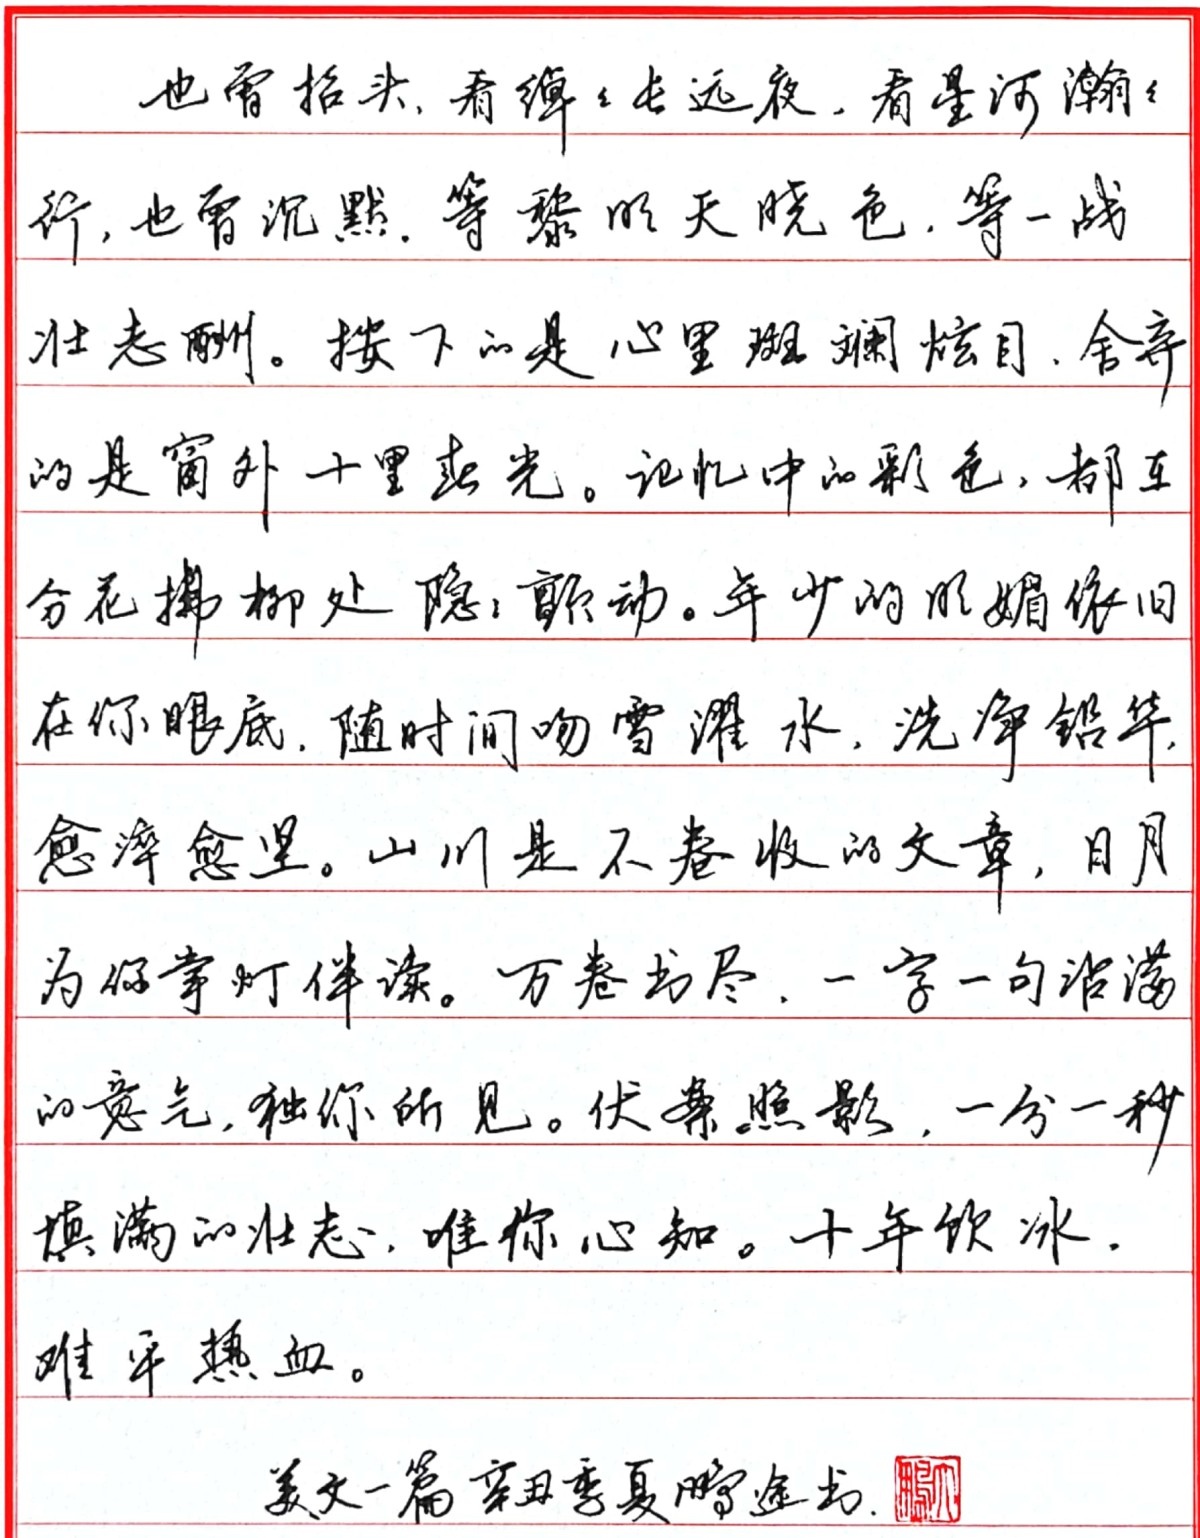 也曾抬头，看绰々长远夜，看星河瀚々
行，也曾沉默，等黎明天晓色，等一战
壮志酬。按下的是心里斑斓炫目，舍弃
的是窗外十里春光。记忆中的彩色，都在
分花拂柳处隐々颤动。年少的明媚依旧
在你眼底，随时间吻雪濯水，洗净铅华，
愈淬愈坚。山川是不卷收的文章，日月
为你掌灯伴读。万卷书尽，一字一句沾满
的意气，独你所见。伏案照影，一分一秒
填满的壮志，唯你心知。十年饮冰，
难平热血。
美文一篇 辛丑季夏鹏途书